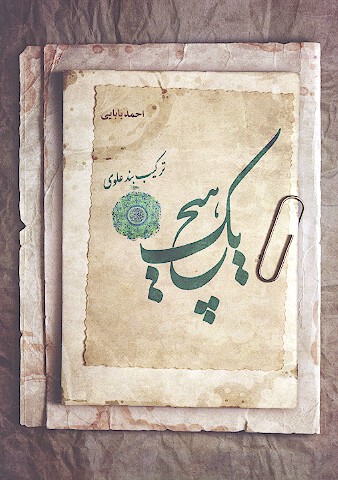 احمد بابایی
ترکیب بند علوی
یک هیچ